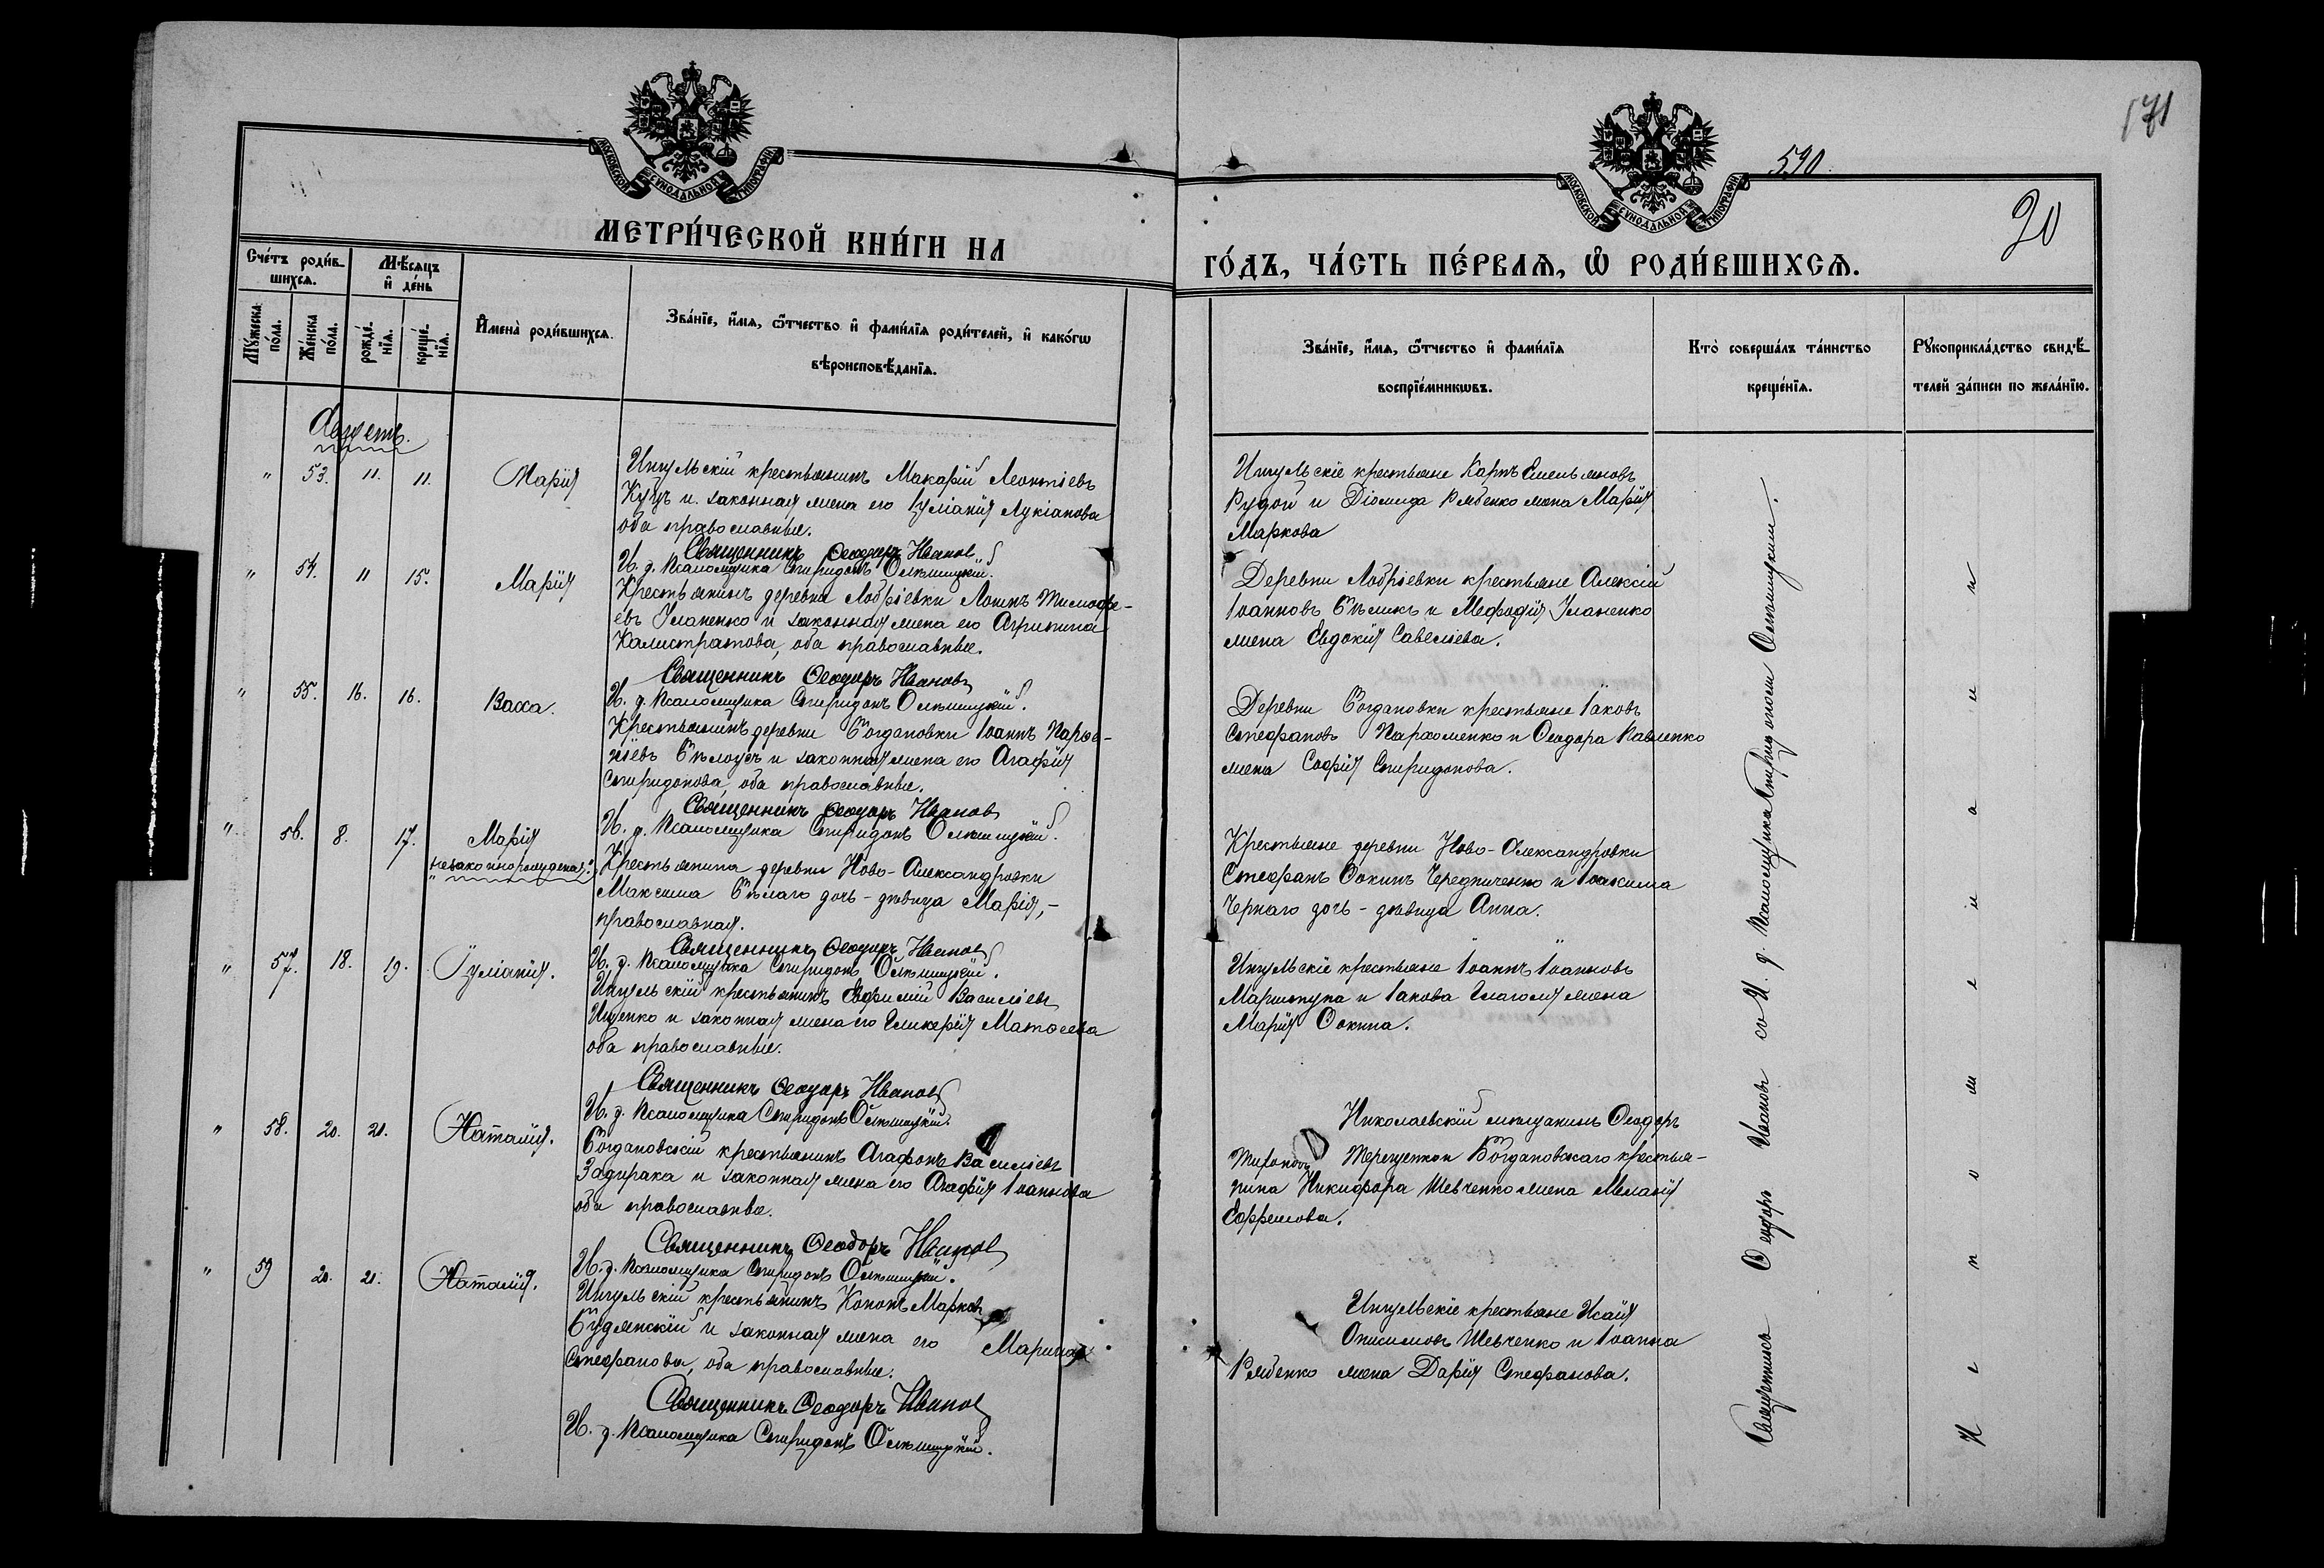 171
590.
20
МОСКОВСКОЙ СУНОДАЛЬНОЙ ТИПОГРАФІИ
МОСКОВСКОЙ СУНОДАЛЬНОЙ ТИПОГРАФІИ
МЕТРИ́ЧЕСКОЙ КНИ́ГИ НА
ГО́ДЪ, ЧА́СТЬ ПЕ́РВАѦ, Ѽ РОДИ́ВШИХСѦ.
Сче́тъ роди́в-
шихсѧ.
Мѣ́сѧцъ
и҆ де́нь
Мꙋ́жеска
по́ла.
Же́нска
по́ла.
рожде́-
нїѧ.
креще́-
нїѧ.
И҆мена̀ роди́вшихсѧ.
Зва́нїе, и҆́мѧ, ѻ҆́тчество и҆ фами́лїѧ роди́телей, и҆ како́гѡ
вѣроисповѣ́данїѧ.
Зва́нїе, и҆́мѧ, ѻ҆́тчество и҆ фами́лїѧ
воспрїе́мникѡвъ.
Кто̀ соверша́лъ та́инство
креще́нїѧ.
Рꙋкоприкла́дство свидѣ́-
телей за́писи по жела́нїю.
Августъ.
" 53. 11. 11. Марія
Ингульскій крестьянинъ Макарій Леонтіевъ
Куцъ и законная жена его Іуліанія Лукіанова
оба православные.
Священникъ Ѳеодоръ Ивановъ
И. д. Псаломщика Спиридонъ Ольшицкій.
Ингульскіе крестьяне Карпъ Емельяновъ
Рудой и Діомида Рябенко жена Марія
Маркова
" 54. 11 15. Марія
Крестьянинъ деревни Лобріевки Логинъ Тимофе-
евъ Уланенко и законная жена его Агрипина
Калистратова, оба православные.
Священникъ Ѳеодоръ Ивановъ
И. д. Псаломщика Спиридонъ Ольшицкій.
Деревни Лобріевки крестьяне Алексій
Іоанновъ Бѣликъ и Мефодія Уланенко
жена Евдокія Савеліева.
" 55. 16. 16. Васса.
Крестьянинъ деревни Богдановки Іоаннъ Парѳе-
ніевъ Бѣлоусъ и законная жена его Агафія
Спиридонова, оба православные.
Священникъ Ѳеодоръ Ивановъ
И. д. Псаломщика Спиридонъ Ольшицкій.
Деревни Богдановки крестьяне Іаковъ
Стефановъ Пархоменко и Ѳеодора Павленко
жена Софія Спиридонова.
" 56. 8. 17. Марія
"незаконнорожденая".
Крестьянина деревни Ново-Александровки
Максима Бѣлаго дочь - дѣвица Марія, -
православная.
Священникъ Ѳеодоръ Ивановъ
И. д. Псаломщика Спиридонъ Ольшицкій.
Крестьяне деревни Ново-Александровки
Стефанъ Ѳокинъ Чередниченко и Іоакима
Чернаго дочь - дѣвица Анна.
" 57. 18. 19. Іуліанія.
Ингульскій крестьянинъ Евфимій Василіевъ
Ищенко и законная жена его Гликерія Матѳеева
оба православные.
Священникъ Ѳеодоръ Ивановъ
И. д. Псаломщика Спиридонъ Ольшицкій.
Ингульскіе крестьяне Іоаннъ Іоанновъ
и Іакова жена
Марія Ѳокина.
" 58. 20. 21. Наталія.
Богдановскій крестьянинъ Агафонъ Василіевъ
Задирака и законная жена его Агафія Іоаннова
оба православные.
Священникъ Ѳеодоръ Ивановъ
И. д. Псаломщика Спиридонъ Ольшицкій.
Николаевскій мѣщанинъ Ѳеодоръ
Богдановскаго крестья-
нина Никифора Шевченко жена Меланія
Ефремова.
" 59 20. 21. Наталія.
Ингульскій крестьянинъ Кононъ Марковъ
и законная жена его Марина
Стефанова, оба православные.
Священникъ Ѳеодоръ Ивановъ
И. д. Псаломщика Спиридонъ Ольшицкій.
Ингульскіе крестьяне Исаія
Онисимовъ Шевченко и Іоанна
Рябенко жена Дарія Стефанова.
Священникъ Ѳеодоръ Ивановъ со И. д. Псаломщика Спиридономъ Ольшицкимъ.